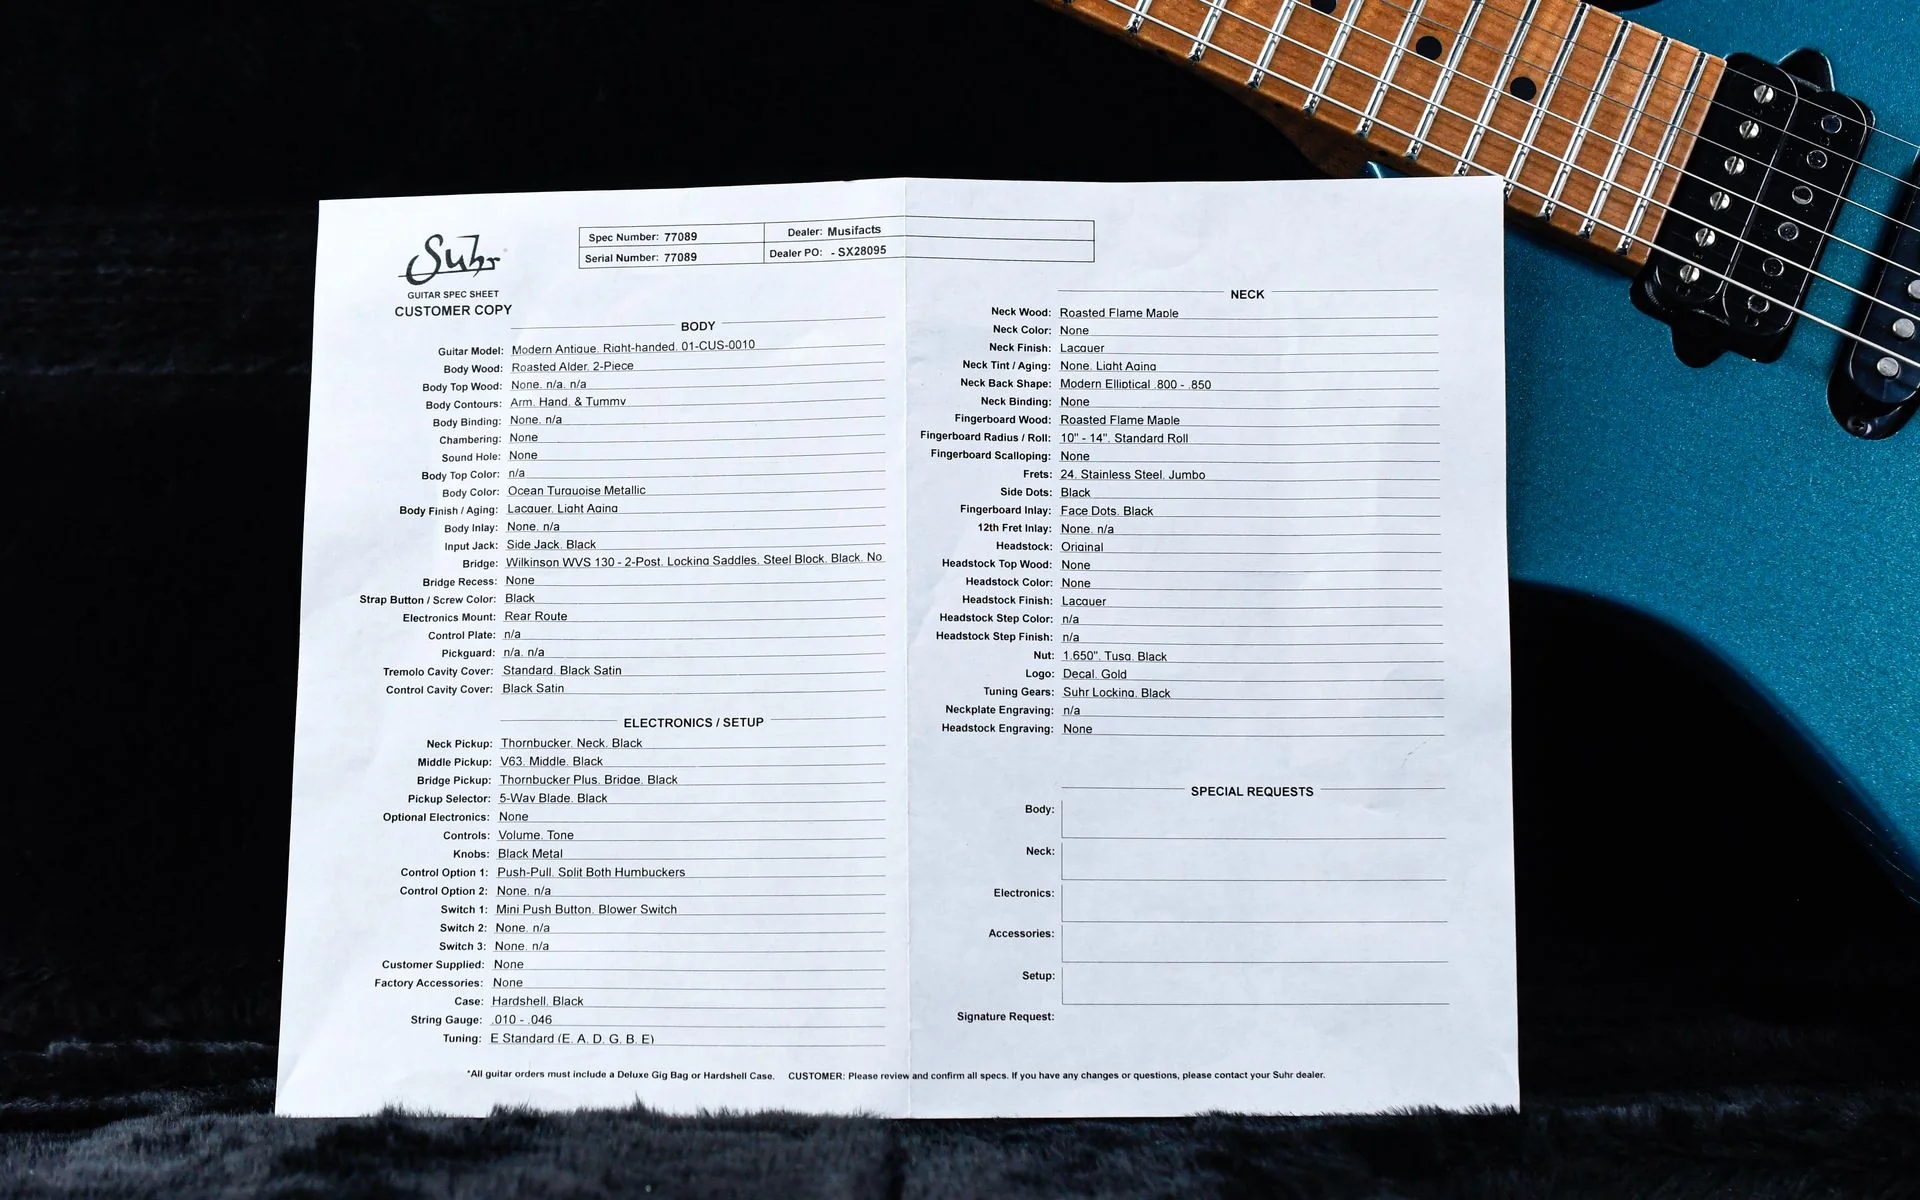 Suhr
GUITAR SPEC SHEET
CUSTOMER COPY
Spec Number: 77089
Dealer: Musifacts
Serial Number: 77089
Dealer PO: - SX28095
BODY
Guitar Model: Modern Antique, Right-handed, 01-CUS-0010
Body Wood: Roasted Alder, 2-Piece
Body Top Wood: None, n/a, n/a
Body Contours: Arm, Hand, & Tummy
Body Binding: None, n/a
Chambering: None
Sound Hole: None
Body Top Color: n/a
Body Color: Ocean Turquoise Metallic
Body Finish / Aging: Lacquer, Light Aging
Body Inlay: None, n/a
Input Jack: Side Jack, Black
Bridge: Wilkinson WVS 130 - 2-Post, Locking Saddles, Steel Block, Black, No
Bridge Recess: None
Strap Button / Screw Color: Black
Electronics Mount: Rear Route
Control Plate: n/a
Pickguard: n/a, n/a
Tremolo Cavity Cover: Standard, Black Satin
Control Cavity Cover: Black Satin
ELECTRONICS / SETUP
Neck Pickup: Thornbucker, Neck, Black
Middle Pickup: V63, Middle, Black
Bridge Pickup: Thornbucker Plus, Bridge, Black
Pickup Selector: 5-Way Blade, Black
Optional Electronics: None
Controls: Volume, Tone
Knobs: Black Metal
Control Option 1: Push-Pull, Split Both Humbuckers
Control Option 2: None, n/a
Switch 1: Mini Push Button, Blower Switch
Switch 2: None, n/a
Switch 3: None, n/a
Customer Supplied: None
Factory Accessories: None
Case: Hardshell, Black
String Gauge: .010 - .046
Tuning: E Standard (E, A, D, G, B, E)
NECK
Neck Wood: Roasted Flame Maple
Neck Color: None
Neck Finish: Lacquer
Neck Tint / Aging: None, Light Aging
Neck Back Shape: Modern Elliptical .800 - .850
Neck Binding: None
Fingerboard Wood: Roasted Flame Maple
Fingerboard Radius / Roll: 10" - 14", Standard Roll
Fingerboard Scalloping: None
Frets: 24, Stainless Steel, Jumbo
Side Dots: Black
Fingerboard Inlay: Face Dots, Black
12th Fret Inlay: None, n/a
Headstock: Original
Headstock Top Wood: None
Headstock Color: None
Headstock Finish: Lacquer
Headstock Step Color: n/a
Headstock Step Finish: n/a
Nut: 1.650", Tusq, Black
Logo: Decal, Gold
Tuning Gears: Suhr Locking, Black
Neckplate Engraving: n/a
Headstock Engraving: None
SPECIAL REQUESTS
Body:
Neck:
Electronics:
Accessories:
Setup:
Signature Request:
*All guitar orders must include a Deluxe Gig Bag or Hardshell Case. CUSTOMER: Please review and confirm all specs. If you have any changes or questions, please contact your Suhr dealer.